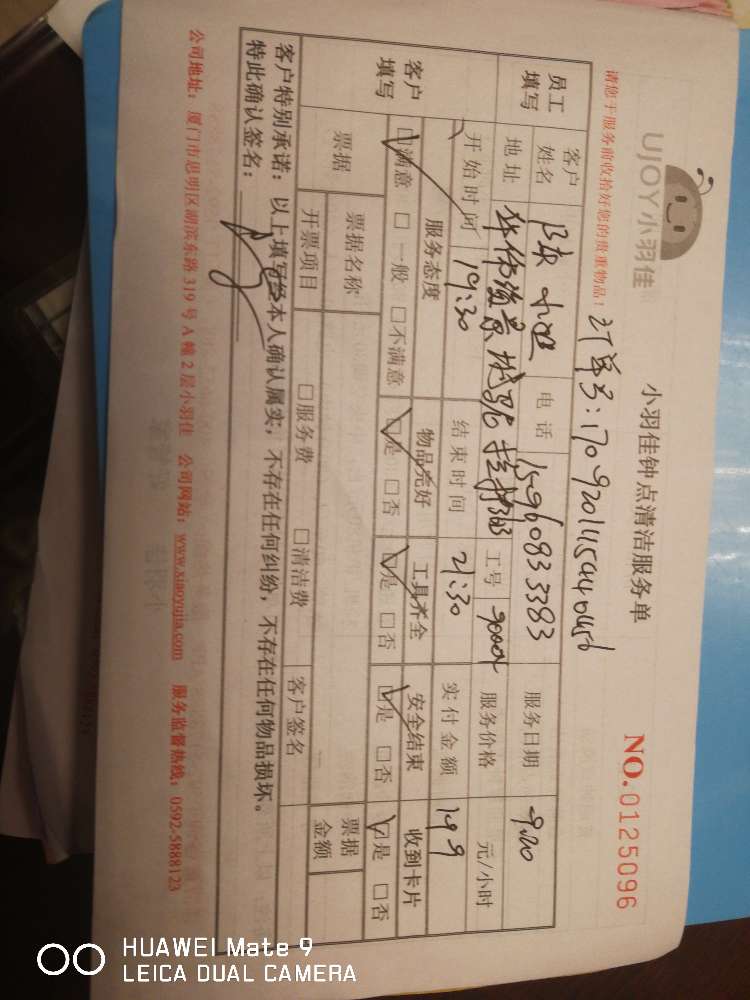 UJOY小羽佳
小羽佳钟点清洁服务单
NO.0125096
请您于服务前收拾好您的贵重物品!
订单号:
员工填写
客户姓名 陈小姐 电话 15960833383 服务日期 9.20
地址 工号 服务价格 元/小时
开始时间 19:30 结束时间 21:30 实付金额 199
客户填写
服务态度 物品完好 工具齐全 安全结束 收到卡片
☑满意 □一般 □不满意 ☑是 □否 ☑是 □否 ☑是 □否 ☑是 □否
票据 票据名称 票据金额
开票项目 □服务费 □清洁费 客户签名
客户特别承诺:以上填写经本人确认属实,不存在任何纠纷,不存在任何物品损坏。
特此确认签名:
公司地址:厦门市思明区湖滨东路319号A幢2层小羽佳 公司网站:www.xiaoyujia.com 服务监督热线:0592-5888123
HUAWEI Mate 9
LEICA DUAL CAMERA